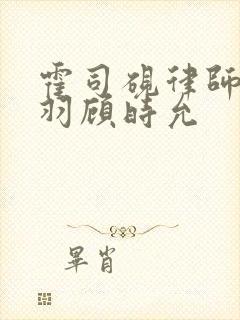 霍司砚律師
羽顾時允
畢肖